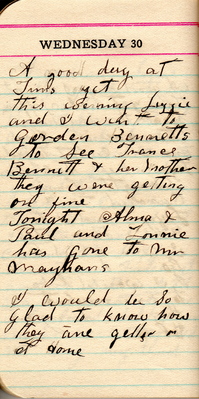 WEDNESDAY 30
A good day at
Tims yet
this evening Lizzie
and I went to
Gorden Bennetts
to see France
Bennett & her Mother
they were getting
on fine
Tonight Alma &
Paul and Tonnie
has gone to Mr
Mayhans
I would be so
glad to know how
they are getting on
at Home